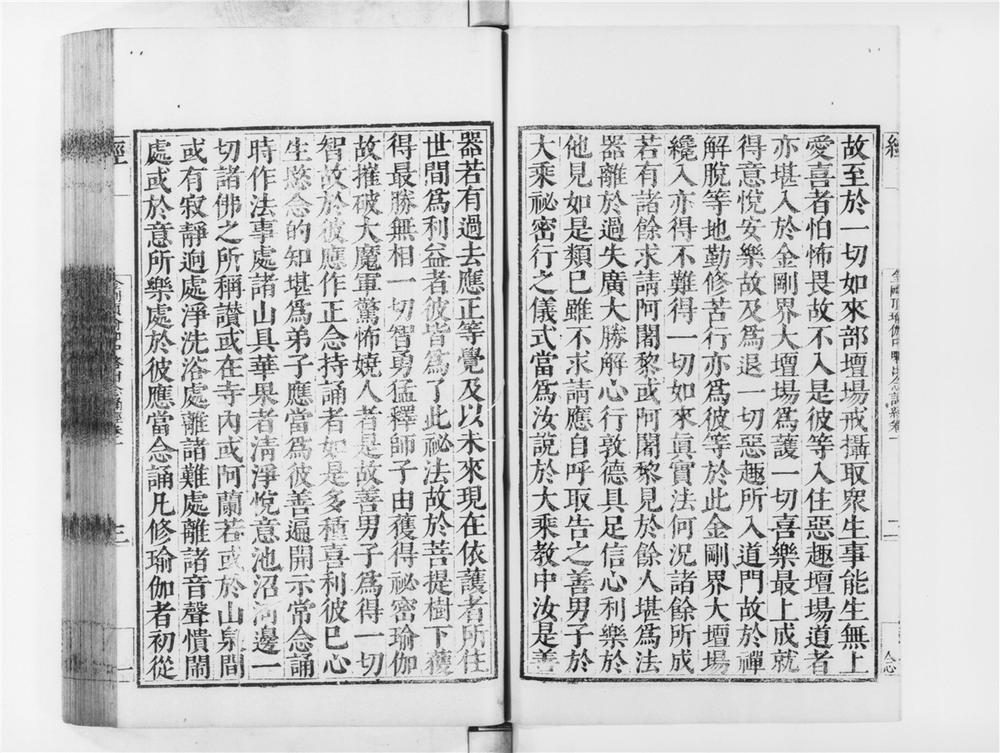 故至於一切如來部壇場戒攝取衆生事能生無上
愛喜者怕怖畏故不入是彼等入住惡趣壇場道者
亦堪入於金剛界大壇場爲護一切喜樂最上成就
得意悅安樂故及爲退一切惡趣所入道門故於禪
解脫等地勤修苦行亦爲彼等於此金剛界大壇場
纔入亦得不難得一切如來眞實法何況諸餘所成
若有諸餘求請阿闍黎或阿闍黎見於餘人堪爲法
器離於過失廣大勝解心行敦德具足信心利樂於
他見如是類已雖不求請應自呼取告之善男子於
大乘祕密行之儀式當爲汝說於大乘教中汝是善
器若有過去應正等覺及以未來現在依護者所住
世間爲利益者彼皆爲了此祕法故於菩提樹下獲
得最勝無相一切智勇猛釋師子由獲得祕密瑜伽
故摧破大魔軍驚怖嬈人者是故善男子爲得一切
智故於彼應作正念持誦者如是多種喜利彼已心
生愍念的知堪爲弟子應當爲彼善遍開示常念誦
時作法事處諸山具華果者清淨悅意池沼河邊一
切諸佛之所稱讚或在寺內或阿蘭若或於山泉間
或有寂靜迥處淨洗浴處離諸難處離諸音聲憒鬧
處或於意所樂處於彼應當念誦凡修瑜伽者初從